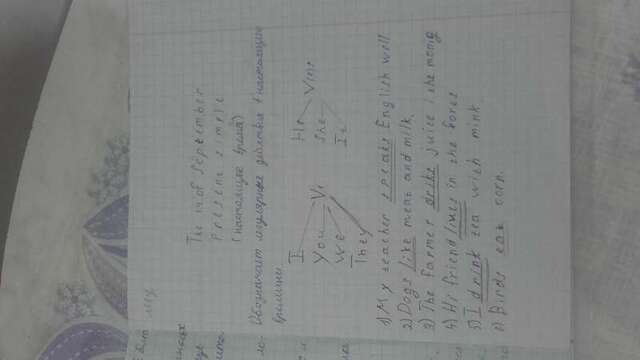 The 14 of September
Present simple
(настоящие время)
Обозначает регулярные действия в настоящие
времини
I
You
We
They
V1
He
She
It
V(s)
1) My teacher speaks English well
2) Dogs like meat and milk.
3) The farmer driks juice i the monig
4) Hi friend lives in the fores
5) I drink tea with mink
6) Birds eat corn.